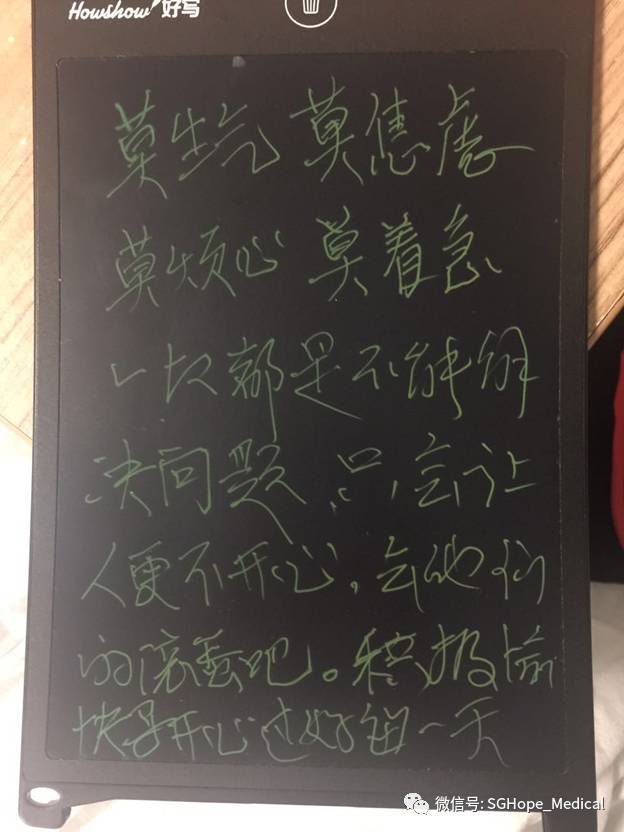 Howshow 好写
莫生气 莫焦虑
莫烦心 莫着急
一切都是不能解
决问题,只会让
人更不开心,去他们
的滚蛋吧。积极愉
快寻开心过好每一天
微信号: SGHope_Medical